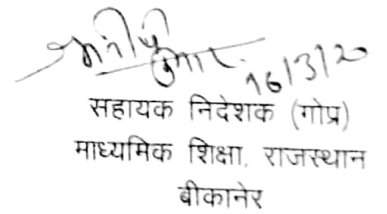 16/3/20
सहायक निदेशक (गोप्र)
माध्यमिक शिक्षा, राजस्थान
बीकानेर